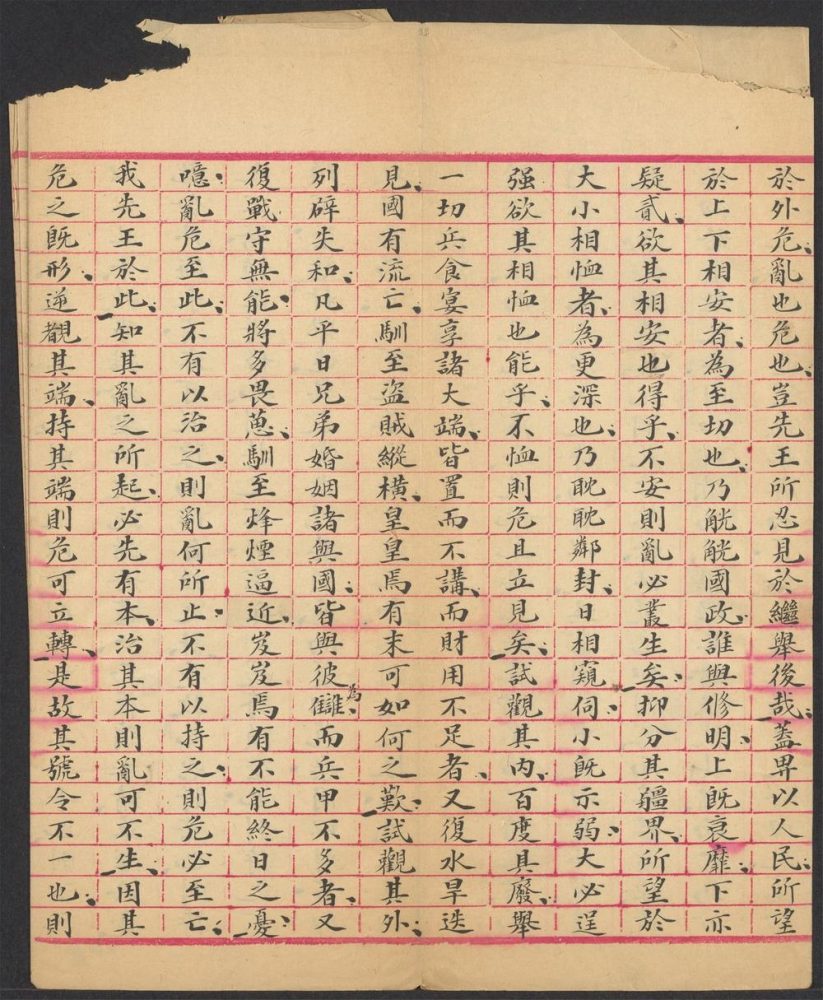 於外危、亂也危也、豈先王所忍見於繼舉後哉、蓋畀以人民、所望
於上下相安者、為至切也、乃觥觥國政、誰與修明、上既衰靡、下亦
疑貳、欲其相安也得乎、不安則亂必叢生矣、抑分其疆界、所望於
大小相恤者、為更深也、乃眈眈鄰封、日相窺伺、小既示弱、大必逞
强欲其相恤也能乎、不恤則危且立見矣、試觀其內、百度具廢、舉
一切兵食宴享諸大端、皆置而不講、而財用不足者、又復水旱迭
見、國有流亡、馴至盜賊縱橫、皇皇焉有末可如何之歎、試觀其外、
列辟失和、凡平日兄弟婚姻諸與國、皆與彼為讎、而兵甲不多者、又
復戰守無能、將多畏葸、馴至烽煙逼近、岌岌焉有不能終日之憂、
噫、亂危至此、不有以治之、則亂何所止、不有以持之、則危必至亡、
我先王於此、知其亂之所起、必先有本、治其本則亂可不生、因其
危之既形、逆覩其端、持其端則危可立轉、是故其號令不一也、則